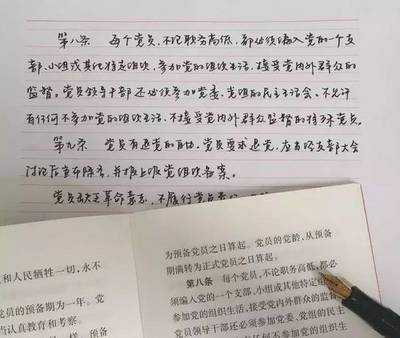 第八条　每个党员，不论职务高低，都必须编入党的一个支
部、小组或其他特定组织，参加党的组织生活，接受党内外群众的
监督。党员领导干部还必须参加党委、党组的民主生活会。不允许
有任何不参加党的组织生活、不接受党内外群众监督的特殊党员。
第九条　党员有退党的自由。党员要求退党，应当经支部大会
讨论后宣布除名，并报上级党组织备案。
党员缺乏革命意志，不履行党员
和人民牺牲一切，永不
党员的预备期为一年。党
当认真教育和考察。
一样。预备
为预备党员之日算起。党员的党龄，从预备
期满转为正式党员之日算起。
第八条　每个党员，不论职务高低，都必
须编入党的一个支部、小组或其他特定组
参加党的组织生活，接受党内外群众的监督
党员领导干部还必须参加党委、党组的民主
任何不参加党的组织生